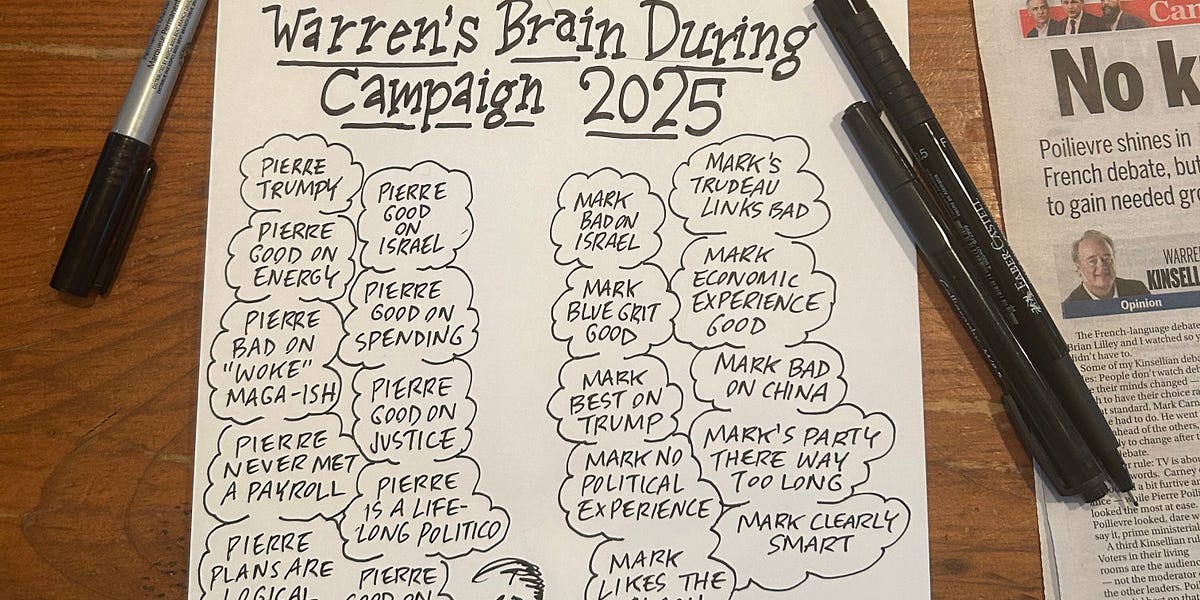 Warren's Brain During
Campaign 2025
PIERRE
TRUMPY
PIERRE
GOOD
ON
ISRAEL
PIERRE
GOOD ON
ENERGY
PIERRE
GOOD ON
SPENDING
PIERRE
BAD ON
"WOKE"
MAGA-ISH
PIERRE
GOOD ON
JUSTICE
PIERRE
NEVER MET
A PAYROLL
PIERRE
IS A LIFE-
LONG POLITICO
PIERRE
PLANS ARE
LOGICAL
PIERRE
GOOD ON
MARK
BAD ON
ISRAEL
MARK'S
TRUDEAU
LINKS BAD
MARK
BLUE GRIT
GOOD
MARK
ECONOMIC
EXPERIENCE
GOOD
MARK
BEST ON
TRUMP
MARK BAD
ON CHINA
MARK NO
POLITICAL
EXPERIENCE
MARK'S PARTY
THERE WAY
TOO LONG
MARK CLEARLY
SMART
MARK
LIKES THE
FABER CASTELL
Can
No k
Poilievre shines in
French debate, but
to gain needed gr
WARRE
KINSELL
Opinion
The French-language debat
Brian Lilley and I watched so y
didn't have to.
Some of my Kinsellian deba
les: People don't watch deb
e their minds changed —
h to have their choice r
t standard, Mark Carn
e had to do. He went
ahead of the others,
ly to change after
debate.
r rule: TV is abou
words. Carney
d a bit furtive a
nce — while Pierre Poi
looked the most at ease.
Poilievre looked, dare w
say it, prime ministerial
A third Kinsellian rul
Voters in their living
rooms are the audien
— not the moderator